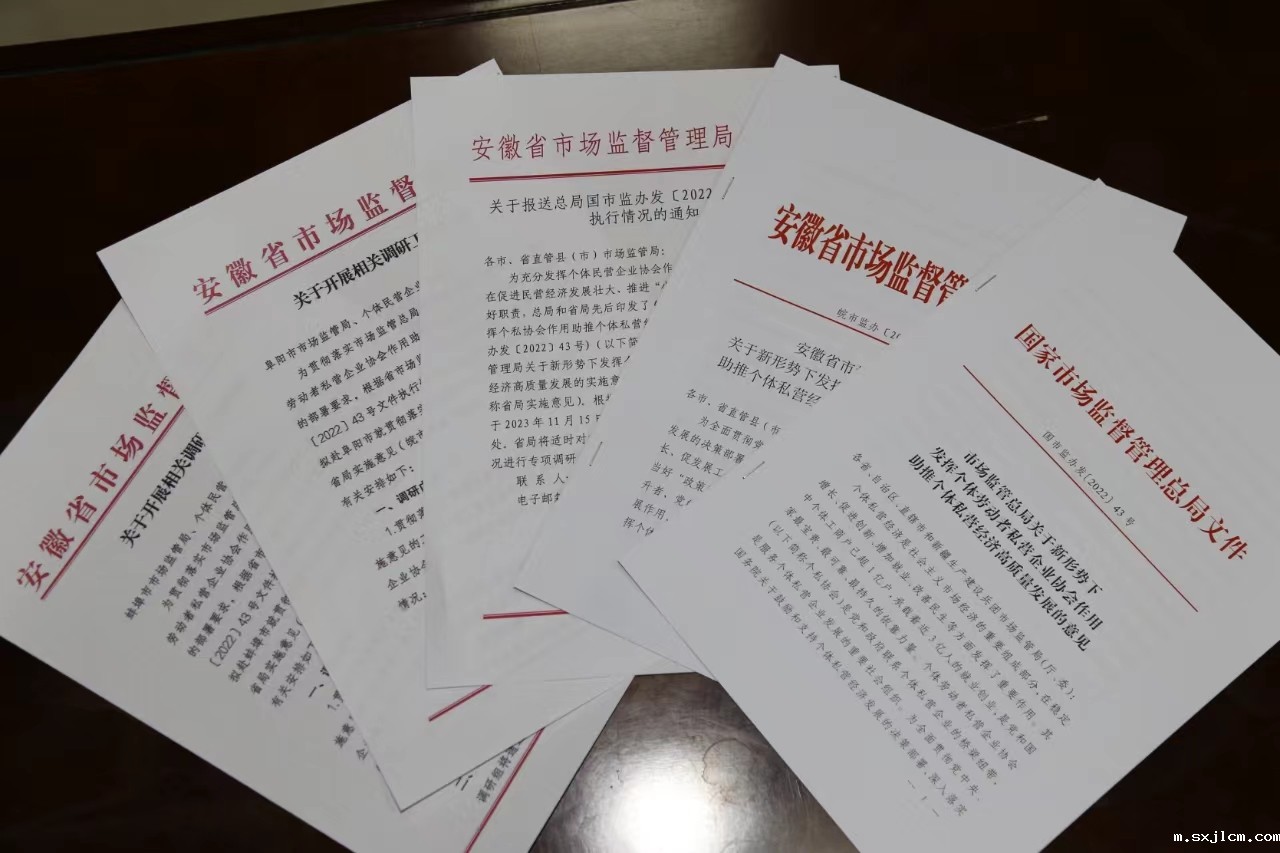 安徽省市场监督
关于开展相关调研
蚌埠市市场监管局、个体民营
为贯彻落实市场监管
劳动者私营企业协会作
的部署要求，根据省市
〔2022〕43号文件
拟处蚌埠市就贯彻
省局实施意见（
有关安排如下：
一、
1.
施意
企
调研组将
安徽省市场监督
关于开展相关调研工
阜阳市市场监管局、个体民营企业
为贯彻落实市场监管总局
劳动者私营企业协会作用助
的部署要求，根据省市场
〔2022〕43号文件执行
拟处阜阳市就贯彻落实
省局实施意见（皖市
有关安排如下：
一、调研
1.贯彻
施意见的
企业协会
情况；
安徽省市场监督管理局
关于报送总局国市监办发〔2022
执行情况的通知
各市、省直管县（市）市场监管局：
为充分发挥个体民营企业协会作
在促进民营经济发展壮大、推进“
好职责，总局和省局先后印发了《
挥个私协会作用助推个体私营
办发〔2022〕43号）（以下简
管理局关于新形势下发挥
经济高质量发展的实施意
称省局实施意见）。根
于2023年11月15日
处。省局将适时对
况进行专项调研
联系人
电子邮
安徽省市场监督管
皖市监办〔2
安徽省市
关于新形势下发
助推个体私营经
各市、省直管县（市
为全面贯彻
发展的决策部署
长、促发展工
当好“政策
升者、党
展作用，
挥个
国家市场监督管理总局文件
国市监办发〔2022〕43号
市场监管总局关于新形势下
发挥个体劳动者私营企业协会作用
助推个体私营经济高质量发展的意见
各省、自治区、直辖市和新疆生产建设兵团市场监管局（厅、委）：
个体私营经济是社会主义市场经济的重要组成部分，在稳定
增长、促进创新、增加就业、改善民生等方面发挥了重要作用。其
中个体工商户已超1亿户，承载着近3亿人的就业创业，是党和国
家最宝贵、最可靠、最持久的依靠力量。个体劳动者私营企业协会
（以下简称个私协会）是党和政府联系个体私营企业的桥梁纽带，
是服务个体私营企业发展的重要社会组织。为全面贯彻党中央、
国务院关于鼓励和支持个体私营经济发展的决策部署，深入落实
— 1 —
m.sxjlcm.com